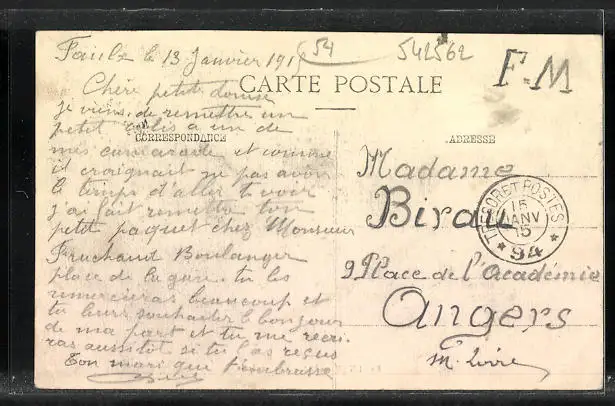 le 13 Janvier 191
654
542562
F.M
CARTE POSTALE
CORRESPONDANCE
ADRESSE
Chère petite
je viens de remettre un
petit colis a un de
mes camarade et comme
il craignait ne pas avoir
le temps d'aller t voir
j'ai fait remettre ton
petit paquet chez Monsieur
Fruchaud Boulanger
place de la gare. tu les
remercieras beaucoup et
tu leurs souhaiter le bonjour
de ma part et tu me recri
ras aussitot si tu las reçus
Ton mari que t'embrasse
Madame
Birau
9 Place de l'Académie
Angers
M. Loire
TRESOR ET POSTES
15
JANV
15
* 94 *